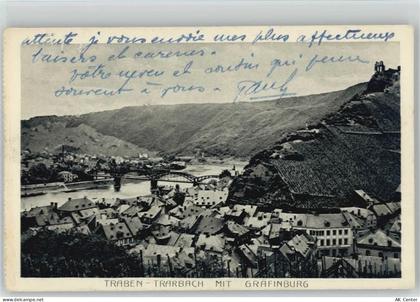 attente je vous envoie mes plus affectueux
baisers et caresses.
Votre neveu et cousin qui pense
souvent à vous. Paul
TRABEN - TRARBACH MIT GRAFINBURG
AK Center